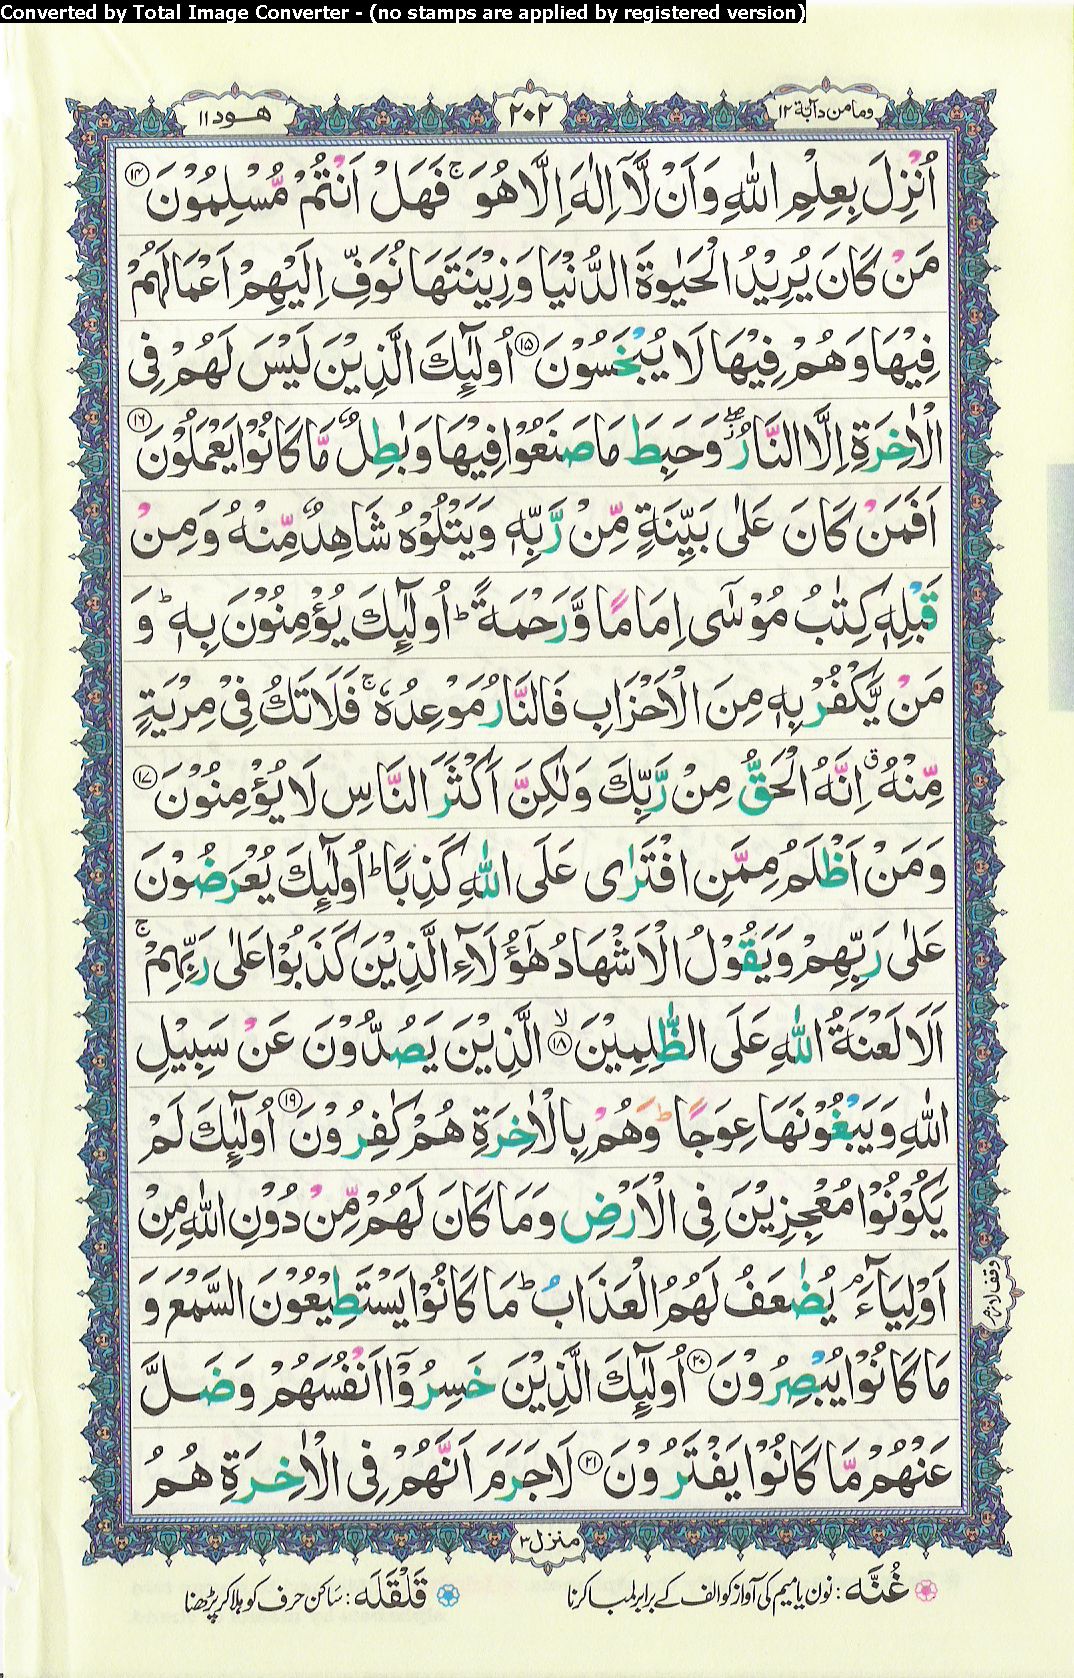 Converted by Total Image Converter - (no stamps are applied by registered version)
ومامن دآبة ١٢
٢٠٢
هود ١١
اُنْزِلَ بِعِلْمِ اللّٰهِ وَاَنْ لَّاۤ اِلٰهَ اِلَّا هُوَ ۚ فَهَلْ اَنْتُمْ مُّسْلِمُوْنَ ﴿١٤﴾
مَنْ كَانَ يُرِيْدُ الْحَيٰوةَ الدُّنْيَا وَزِيْنَتَهَا نُوَفِّ اِلَيْهِمْ اَعْمَالَهُمْ
فِيْهَا وَهُمْ فِيْهَا لَا يُبْخَسُوْنَ ﴿١٥﴾ اُولٰٓئِكَ الَّذِيْنَ لَيْسَ لَهُمْ فِى
الْاٰخِرَةِ اِلَّا النَّارُ ۖ وَحَبِطَ مَا صَنَعُوْا فِيْهَا وَبٰطِلٌ مَّا كَانُوْا يَعْمَلُوْنَ ﴿١٦﴾
اَفَمَنْ كَانَ عَلٰى بَيِّنَةٍ مِّنْ رَّبِّهٖ وَيَتْلُوْهُ شَاهِدٌ مِّنْهُ وَمِنْ
قَبْلِهٖ كِتٰبُ مُوْسٰٓى اِمَامًا وَّرَحْمَةً ؕ اُولٰٓئِكَ يُؤْمِنُوْنَ بِهٖ ؕ وَ
مَنْ يَّكْفُرْ بِهٖ مِنَ الْاَحْزَابِ فَالنَّارُ مَوْعِدُهٗ ۚ فَلَا تَكُ فِىْ مِرْيَةٍ
مِّنْهُ ۗ اِنَّهُ الْحَقُّ مِنْ رَّبِّكَ وَلٰكِنَّ اَكْثَرَ النَّاسِ لَا يُؤْمِنُوْنَ ﴿١٧﴾
وَمَنْ اَظْلَمُ مِمَّنِ افْتَرٰى عَلَى اللّٰهِ كَذِبًا ؕ اُولٰٓئِكَ يُعْرَضُوْنَ
عَلٰى رَبِّهِمْ وَيَقُوْلُ الْاَشْهَادُ هٰٓؤُلَآءِ الَّذِيْنَ كَذَبُوْا عَلٰى رَبِّهِمْ ۚ
اَلَا لَعْنَةُ اللّٰهِ عَلَى الظّٰلِمِيْنَ ۙ﴿١٨﴾ الَّذِيْنَ يَصُدُّوْنَ عَنْ سَبِيْلِ
اللّٰهِ وَيَبْغُوْنَهَا عِوَجًا ؕ وَهُمْ بِالْاٰخِرَةِ هُمْ كٰفِرُوْنَ ﴿١٩﴾ اُولٰٓئِكَ لَمْ
يَكُوْنُوْا مُعْجِزِيْنَ فِى الْاَرْضِ وَمَا كَانَ لَهُمْ مِّنْ دُوْنِ اللّٰهِ مِنْ
اَوْلِيَآءَ ۘ يُضٰعَفُ لَهُمُ الْعَذَابُ ؕ مَا كَانُوْا يَسْتَطِيْعُوْنَ السَّمْعَ وَ
وقف لازم
مَا كَانُوْا يُبْصِرُوْنَ ﴿٢٠﴾ اُولٰٓئِكَ الَّذِيْنَ خَسِرُوْۤا اَنْفُسَهُمْ وَضَلَّ
عَنْهُمْ مَّا كَانُوْا يَفْتَرُوْنَ ﴿٢١﴾ لَا جَرَمَ اَنَّهُمْ فِى الْاٰخِرَةِ هُمُ
منزل ٣
غُنَّه : نون یا میم کی آواز کو الف کے برابر لمبا کرنا
قَلْقَلَه : ساکن حرف کو ہلا کر پڑھنا